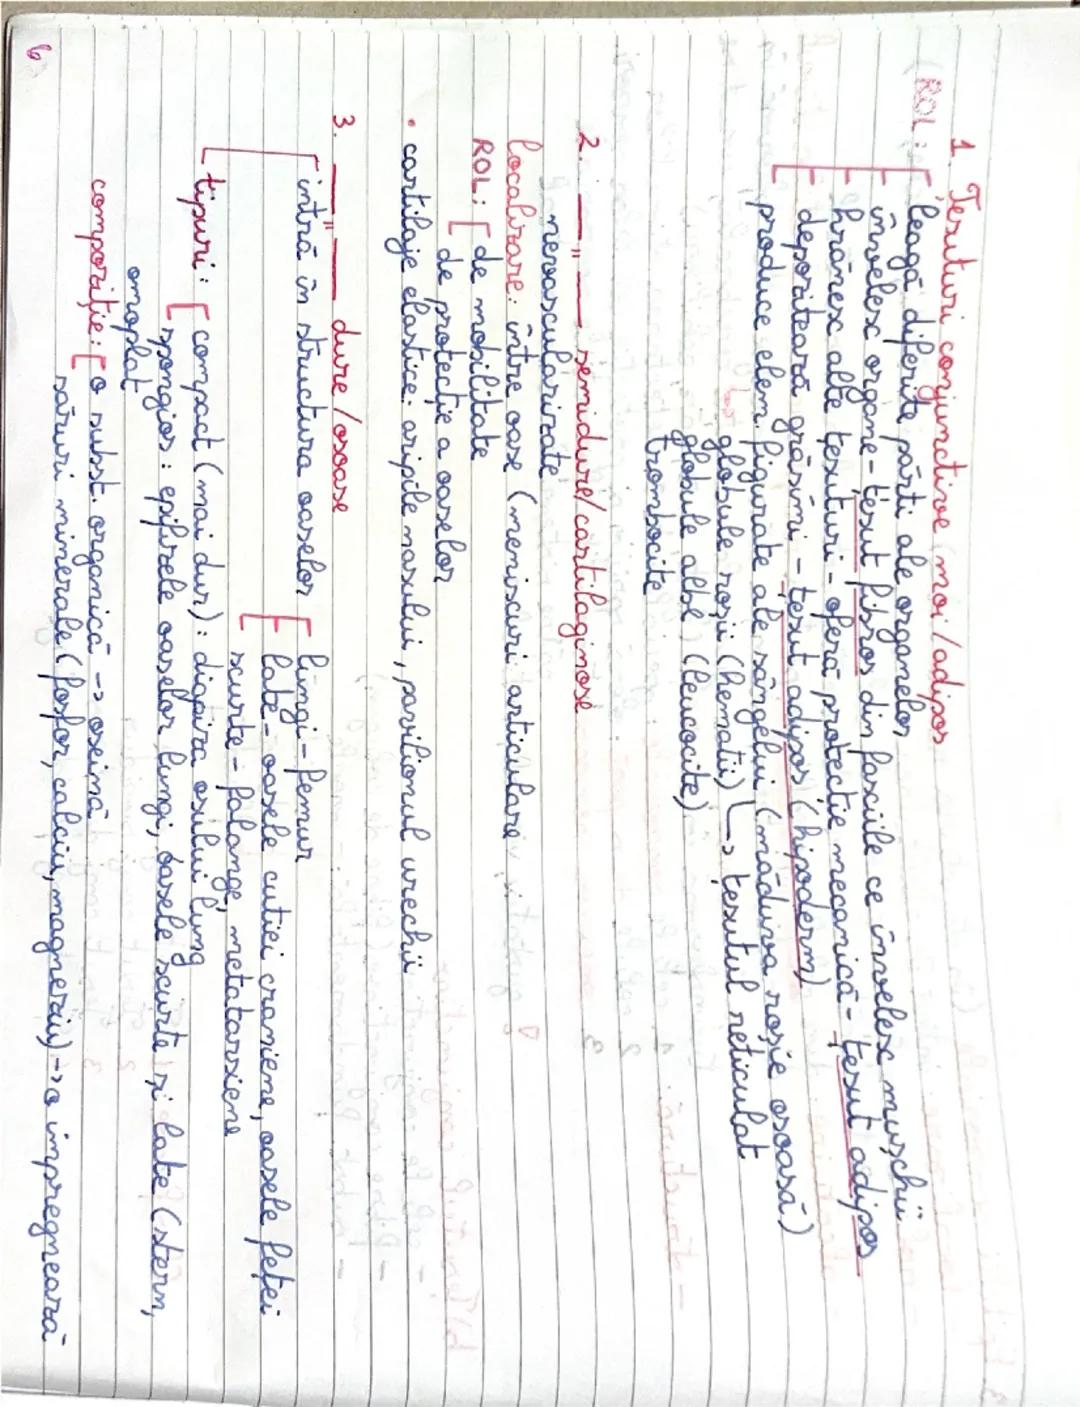 1. Țesuturi conjunctive moi/adipos
ROL: leagă diferite părți ale organelor
învelesc organe - țesut fibros din fasciile ce învelesc mușchii
hrănesc alte țesuturi - oferă protecție mecanică - țesut adipos
depozitează grăsimi - țesut adipos (hipoderm)
produce elem. figurate ale sângelui (măduva roșie osoasă)
globule roșii (hematii) ↳ țesutul reticulat
globule albe (leucocite)
trombocite
2. —"— semidure/cartilaginose
nevascularizate
localizare: între oase (meniscuri articulare)
ROL: [ de mobilitate
de protecție a oaselor
• cartilaje elastice: aripile nasului, pavilionul urechii
3. —"— dure/osoase
intră în structura oaselor [ lungi - femur
late - oasele cutiei craniene, oasele feței
scurte - falange, metatarsiene
tipuri: [ compact (mai dur): diafiza osului lung
spongios: epifizele oaselor lungi, oasele scurte și late (stern,
omoplat
compoziție: [ o subst. organică -> oseină
săruri minerale (fosfor, calciu, magneziu) -> o impregnează
6